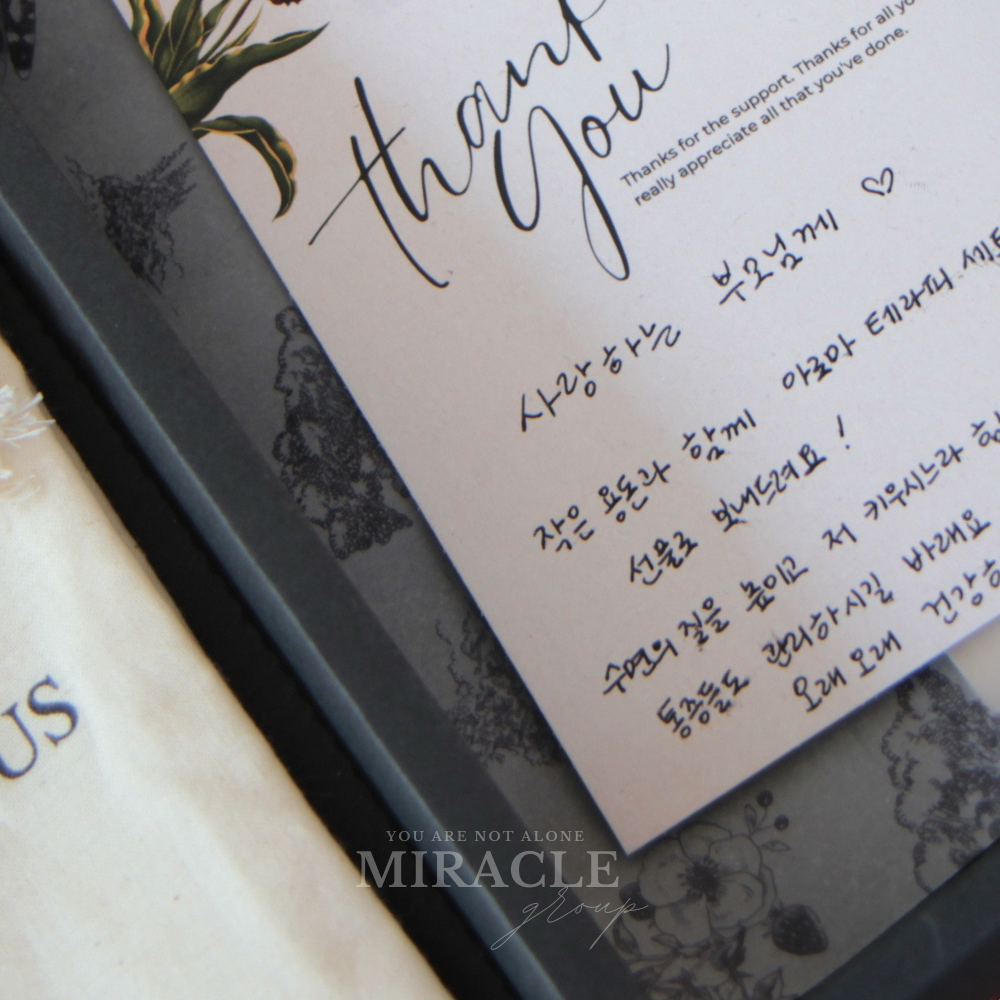 thank
you
Thanks for the support. Thanks for all
really appreciate all that you've done.
사랑하는 부모님께 ♡
작은 용돈과 함께 아로마 테라피
선물로 보내드려요!
수면의 질을 높이고 저 키우시느라
통증들도 관리하시길 바래요
오래오래
US
YOU ARE NOT ALONE
MIRACLE
group